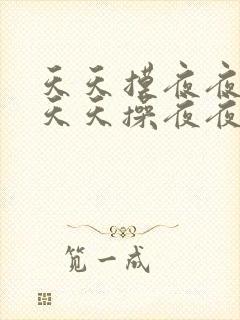 天天摸夜夜
天天操夜夜
笕一成